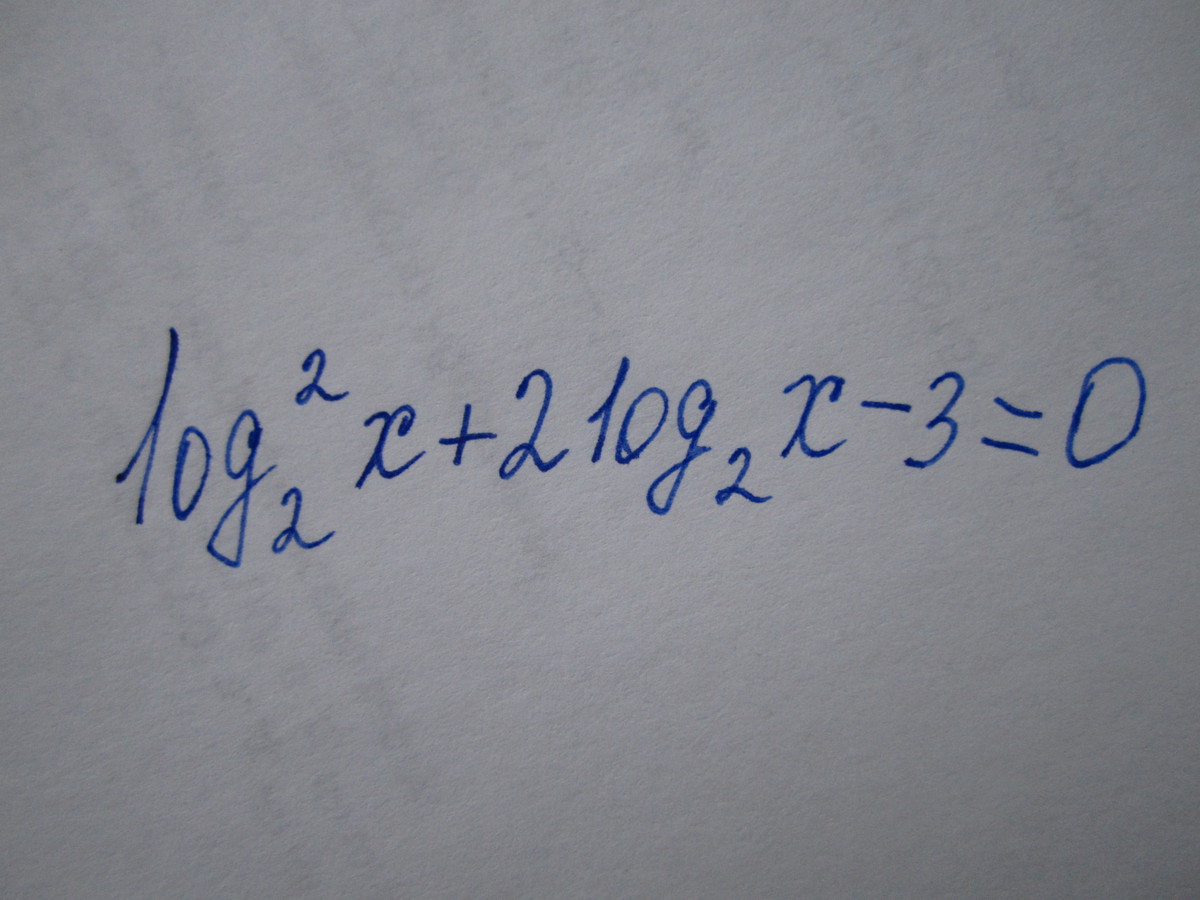 log₂² x + 2 log₂ x − 3 = 0